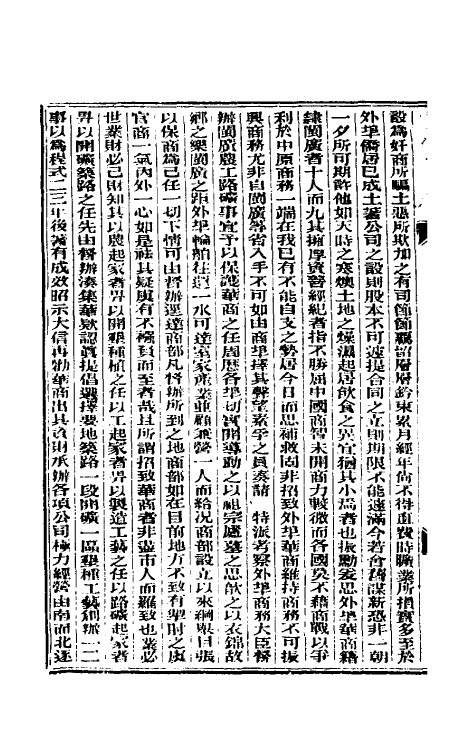 設為奸商所騙土惡所欺加之有司節節羈留層層鈐束累月經年尚不得直費時曠業所損實多至於
外埠僑居已成土著公司之設則股本不可遽提合同之立則期限不能遽滿今若舍舊謀新恐非一朝
一夕所可期許他如天時之寒燠土地之燥濕起居飲食之異宜猶其小焉者也振勳委思外埠華商籍
隸閩廣者十人而九其擁厚貲善經紀者指不勝屈中國商智未開商力較微而各國莫不藉商戰以爭
利於中原商務一端在我已有不能自支之勢居今日而思補救固非招致外埠華商維持商務不可振
興商務尤非自閩廣等省入手不可如由商埠擇其聲望素孚之員奏請 特派考察外埠商務大臣督
辦閩廣農工路礦事宜予以保護華商之任周歷各埠切實開導動之以祖宗廬墓之思歆之以衣錦故
鄉之樂閩廣之距外埠輪舶往還一水可達室家產業並顧兼營一人而給況商部設立以來綱舉目張
以保商為己任一切下情可由督辦逕達商部凡督辦所到之地商部如在目前地方不致有掣肘之虞
官商一氣內外一心如是社其疑虞有不極負而至者哉且所謂招致華商者非盡市人而羅致也業必
世業財必己財知其以農起家者畀以開墾種植之任以工起家者畀以製造工藝之任以路礦起家者
畀以開礦築路之任先由督辦湊集華欵認真提倡選擇要地築路一段開礦一區墾種工藝創辦一二
事以為程式二三年後著有成效昭示大信再勸華商出其資財承辦各項公司極力經營由南而北逐